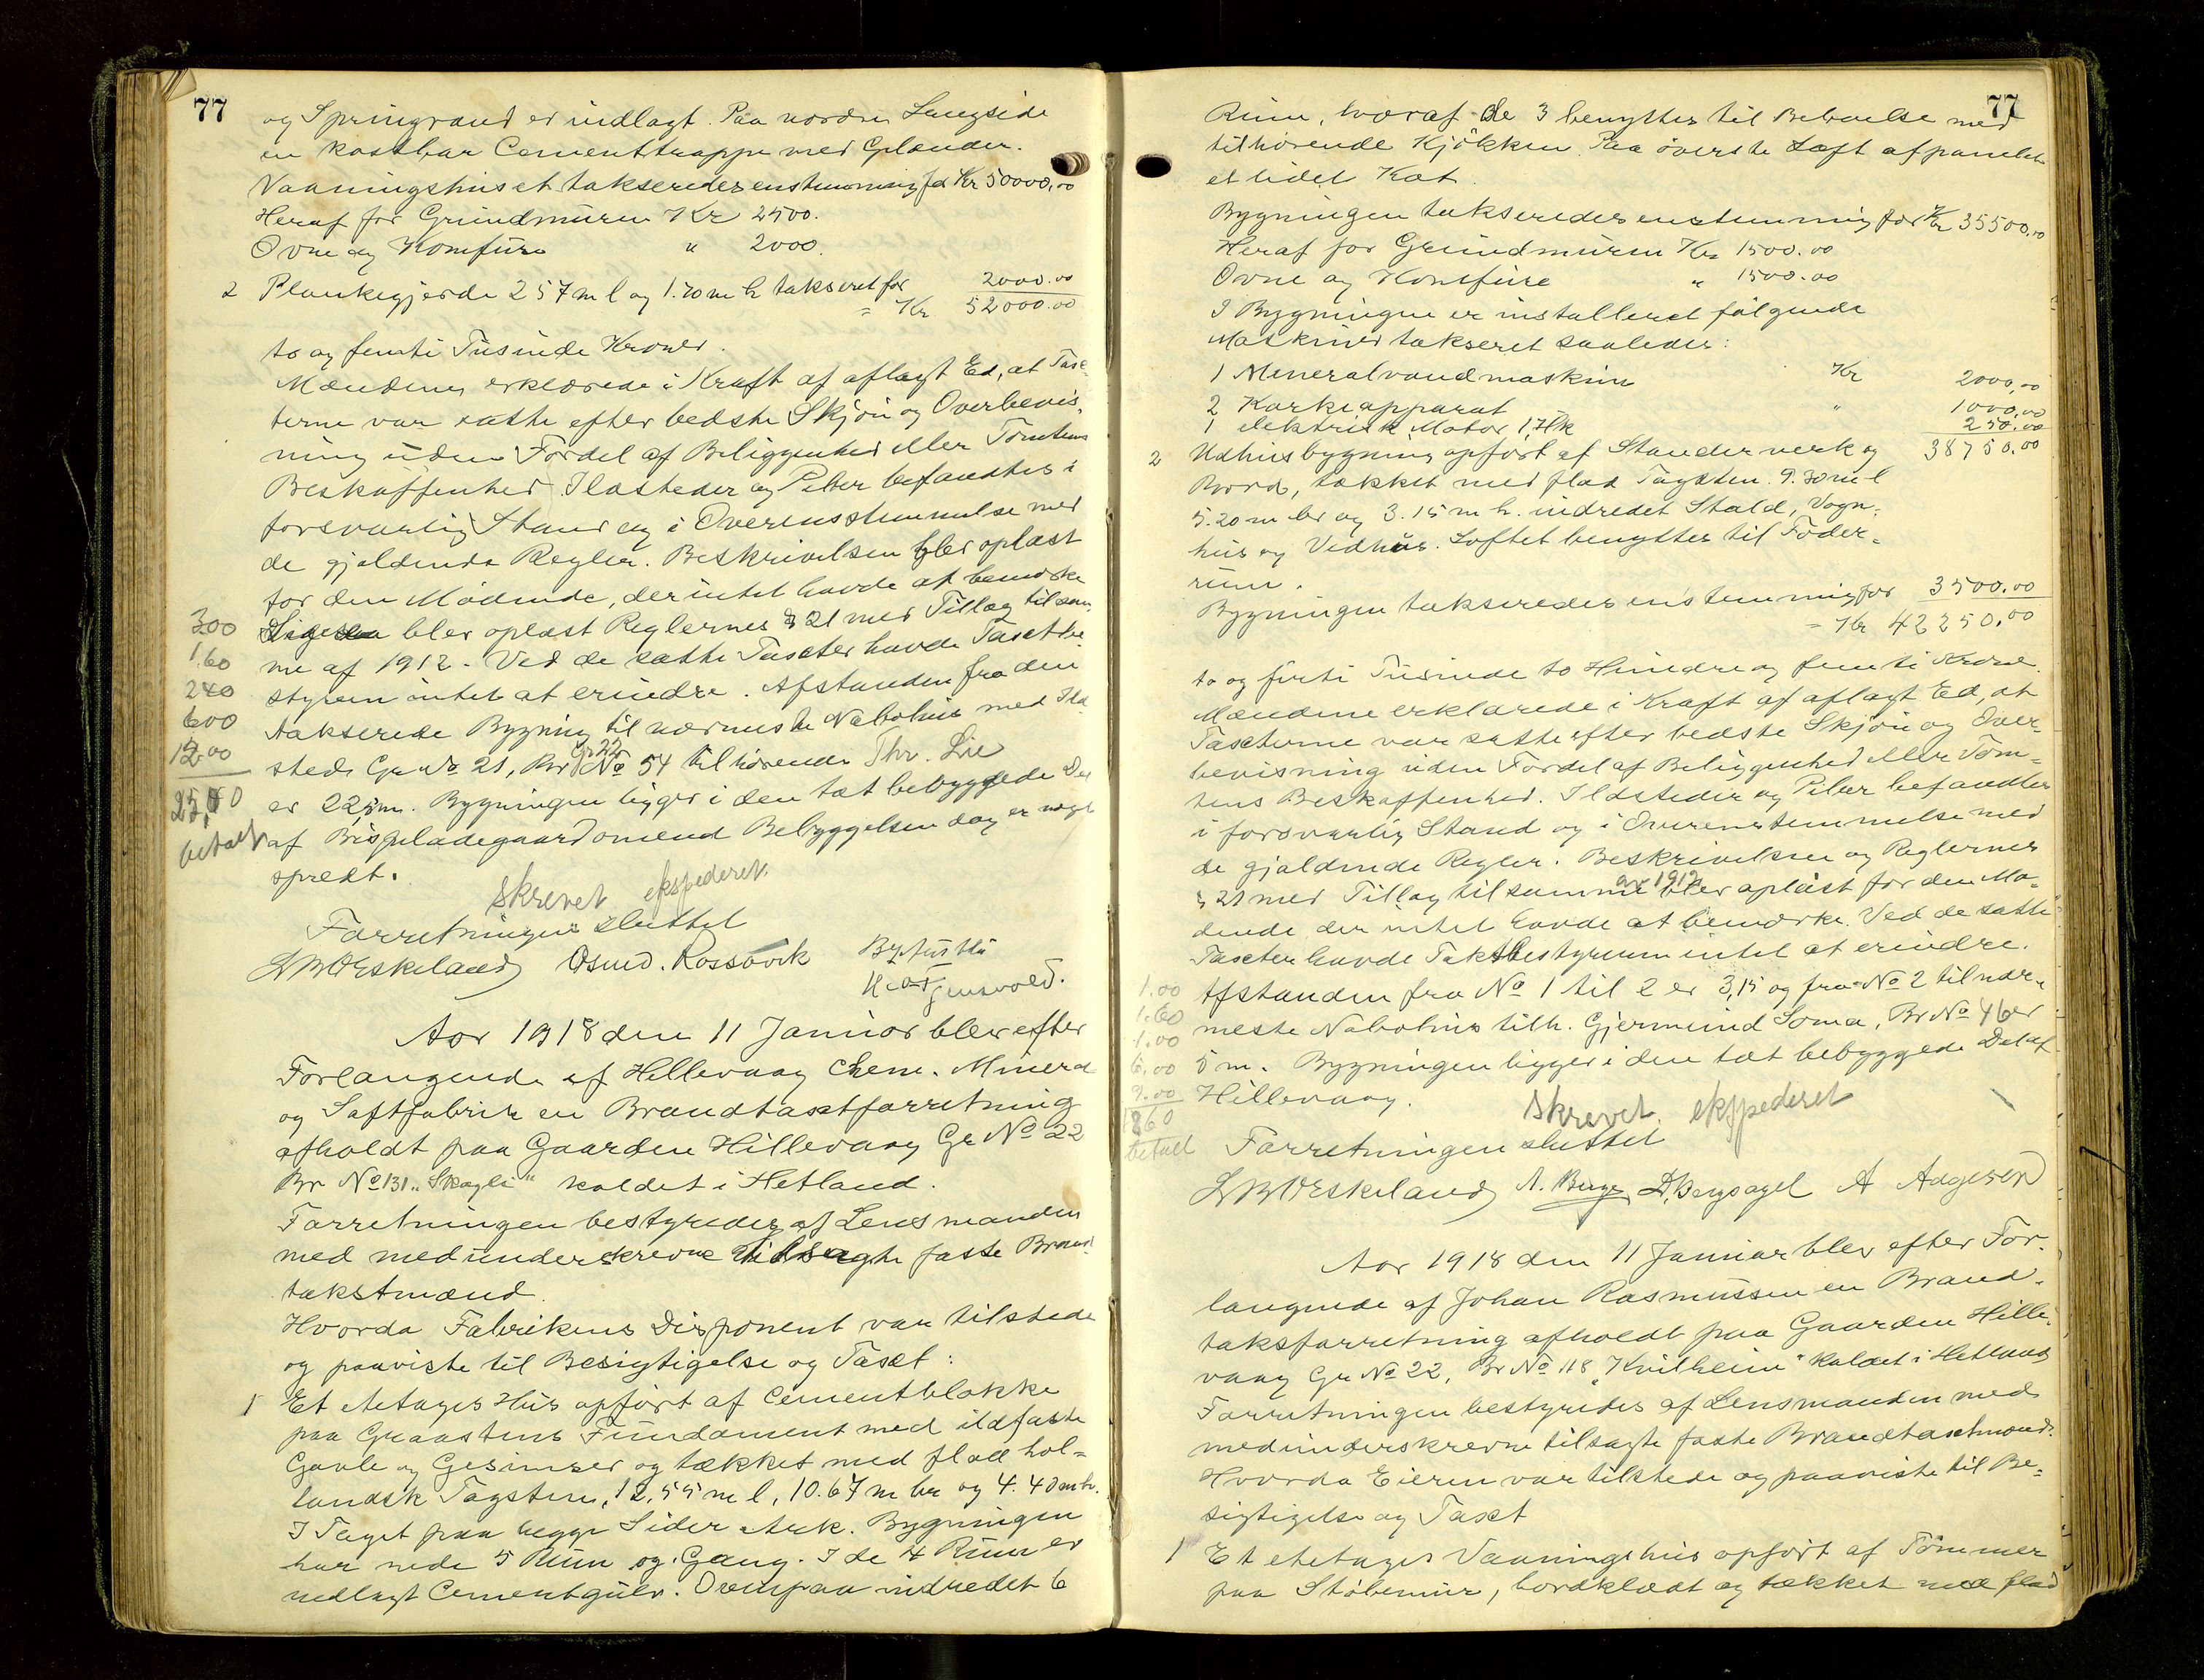 77
og Springvand er indlagt. Paa nordre Langside
en kostbar Cementtrappe med Gelænder.
Vaaningshuset takseredes enstemmig for Kr 50000,00
Heraf for Grundmuren Kr 2500.
Ovne og Komfure " 2000.
2 Plankegjerde 257 m l og 1.70 m h takseret for 2000.00
= Kr 52000.00
to og femti Tusinde Kroner.
Mændene erklærede i Kraft af aflagt Ed, at Tax-
terne var satte efter bedste Skjøn og Overbevis-
ning uden Fordel af Beliggenhed eller Tomtens
Beskaffenhed. Ildsteder og Piber befandtes i
forsvarlig Stand og i Overensstemmelse med
de gjeldende Regler. Beskrivelsen blev oplæst
for den Mødende, der intet havde at bemerke
Ligesaa blev oplæst Reglernes § 21 med Tillæg til sam-
me af 1912. Ved de satte Taxter havde Taxtbe
styreren intet at erindre. Afstanden fra den
takserede Bygning til nærmeste Nabohus med Ild-
sted, Gr No 21, Br No 54 tilhørende Thv. Lie
Gr 22
er 22,5 m. Bygningen ligger i den tæt bebyggede Del
af Bispeladegaard omend Bebyggelsen dog er noget
spredt.
300
1.60
240
600
12.00
25,00
betalt
skrevet ekspederet.
Forretningen sluttet
L M Eskeland Osmd. Rossavik
Aar 1918 den 11 Januar blev efter
Forlangende af Hillevaag Chem. Mineral
og Saftfabrik en Brandtaxtforretning
afholdt paa Gaarden Hillevaag Gr No 22
Br No 131 „Skogli" kaldet i Hetland.
Forretningen bestyredes af Lensmanden
med medunderskrevne tilsagte faste Brand-
takstmænd.
Hvorda Fabrikens Disponent var tilstede
og paaviste til Besigtigelse og Taxt:
1 Et etetages Hus opført af Cementblokke
paa Graastens Fundament med ildfaste
Gavle og Gesimser og tækket med flad hol-
landsk Tagsten, 12,55 m l, 10.67 m br og 4.40 m h.
I Taget paa begge Sider Ark. Bygningen
har nede 5 Rum og Gang. I de 4 Rum er
nedlagt Cementgulv. Ovenpaa indredet 6
77
Rum, hvoraf de 3 benyttes til Beboelse med
tilhørende Kjøkken. Paa øverste Loft afpanelet
et lidet Kot.
Bygningen takseredes enstemmig for Kr 35500.00
Heraf for Grundmuren Kr 1500.00
Ovne og Komfure " 1500.00
I Bygningen er installeret følgende
Maskiner takseret saaledes:
1 Mineralvandmaskin Kr 2000,00
2 Korkeapparat " 1000,00
1 elektrisk Motor 1, Hk 250.00
38750.00
2 Udhusbygning opført af Stenderverk og
Bord, tækket med flad Tagsten. 9.30 m l
5.20 m br og 3.15 m h. indredet Stald, Vogn-
hus og Vedhus. Loftet benyttes til Foder-
rum.
Bygningen takseredes enstemmig for 3500.00
= Kr 42250.00
to og firti Tusinde to Hundre og femti Kroner.
Mændene erklærede i Kraft af aflagt Ed, at
Taxterne var satte efter bedste Skjøn og Over-
bevisning uden Fordel af Beliggenhed eller Tom-
tens Beskaffenhed. Ildsteder og Piber befandtes
i forsvarlig Stand og i Overenstemmelse med
de gjældende Regler. Beskrivelsen og Reglernes
av 1912
§ 21 med Tillæg til samme blev oplæst for den Mø-
dende der intet havde at bemærke. Ved de satte
Taxter havde Takstbestyreren intet at erindre.
Afstanden fra No 1 til 2 er 3,15 og fra No 2 til nær-
meste Nabohus tilh. Gjermund Soma, Br No 46 er
5 m. Bygningen ligger i den tæt bebyggede Del af
Hillevaag.
1.00
1.60
1.00
6.00
9.00
1860
betalt
skrevet. ekspederet
Forretningen sluttet
L M Eskeland A. Berge D. Bergsagel A Aagesen
Aar 1918 den 11 Januar blev efter For-
langende af Johan Rasmussen en Brand-
taksforretning afholdt paa Gaarden Hille-
vaag Gr No 22, Br No 118 „Kvilheim" kaldet i Hetland
Forretningen bestyredes af Lensmanden med
medunderskrevne tilsagte faste Brandtaxtmænd.
Hvorda Eieren var tilstede og paaviste til Be-
sigtigelse og Taxt
1 Et etetages Vaaningshus opført af Tømmer
paa Støbemur, bordklædt og tækket med flad